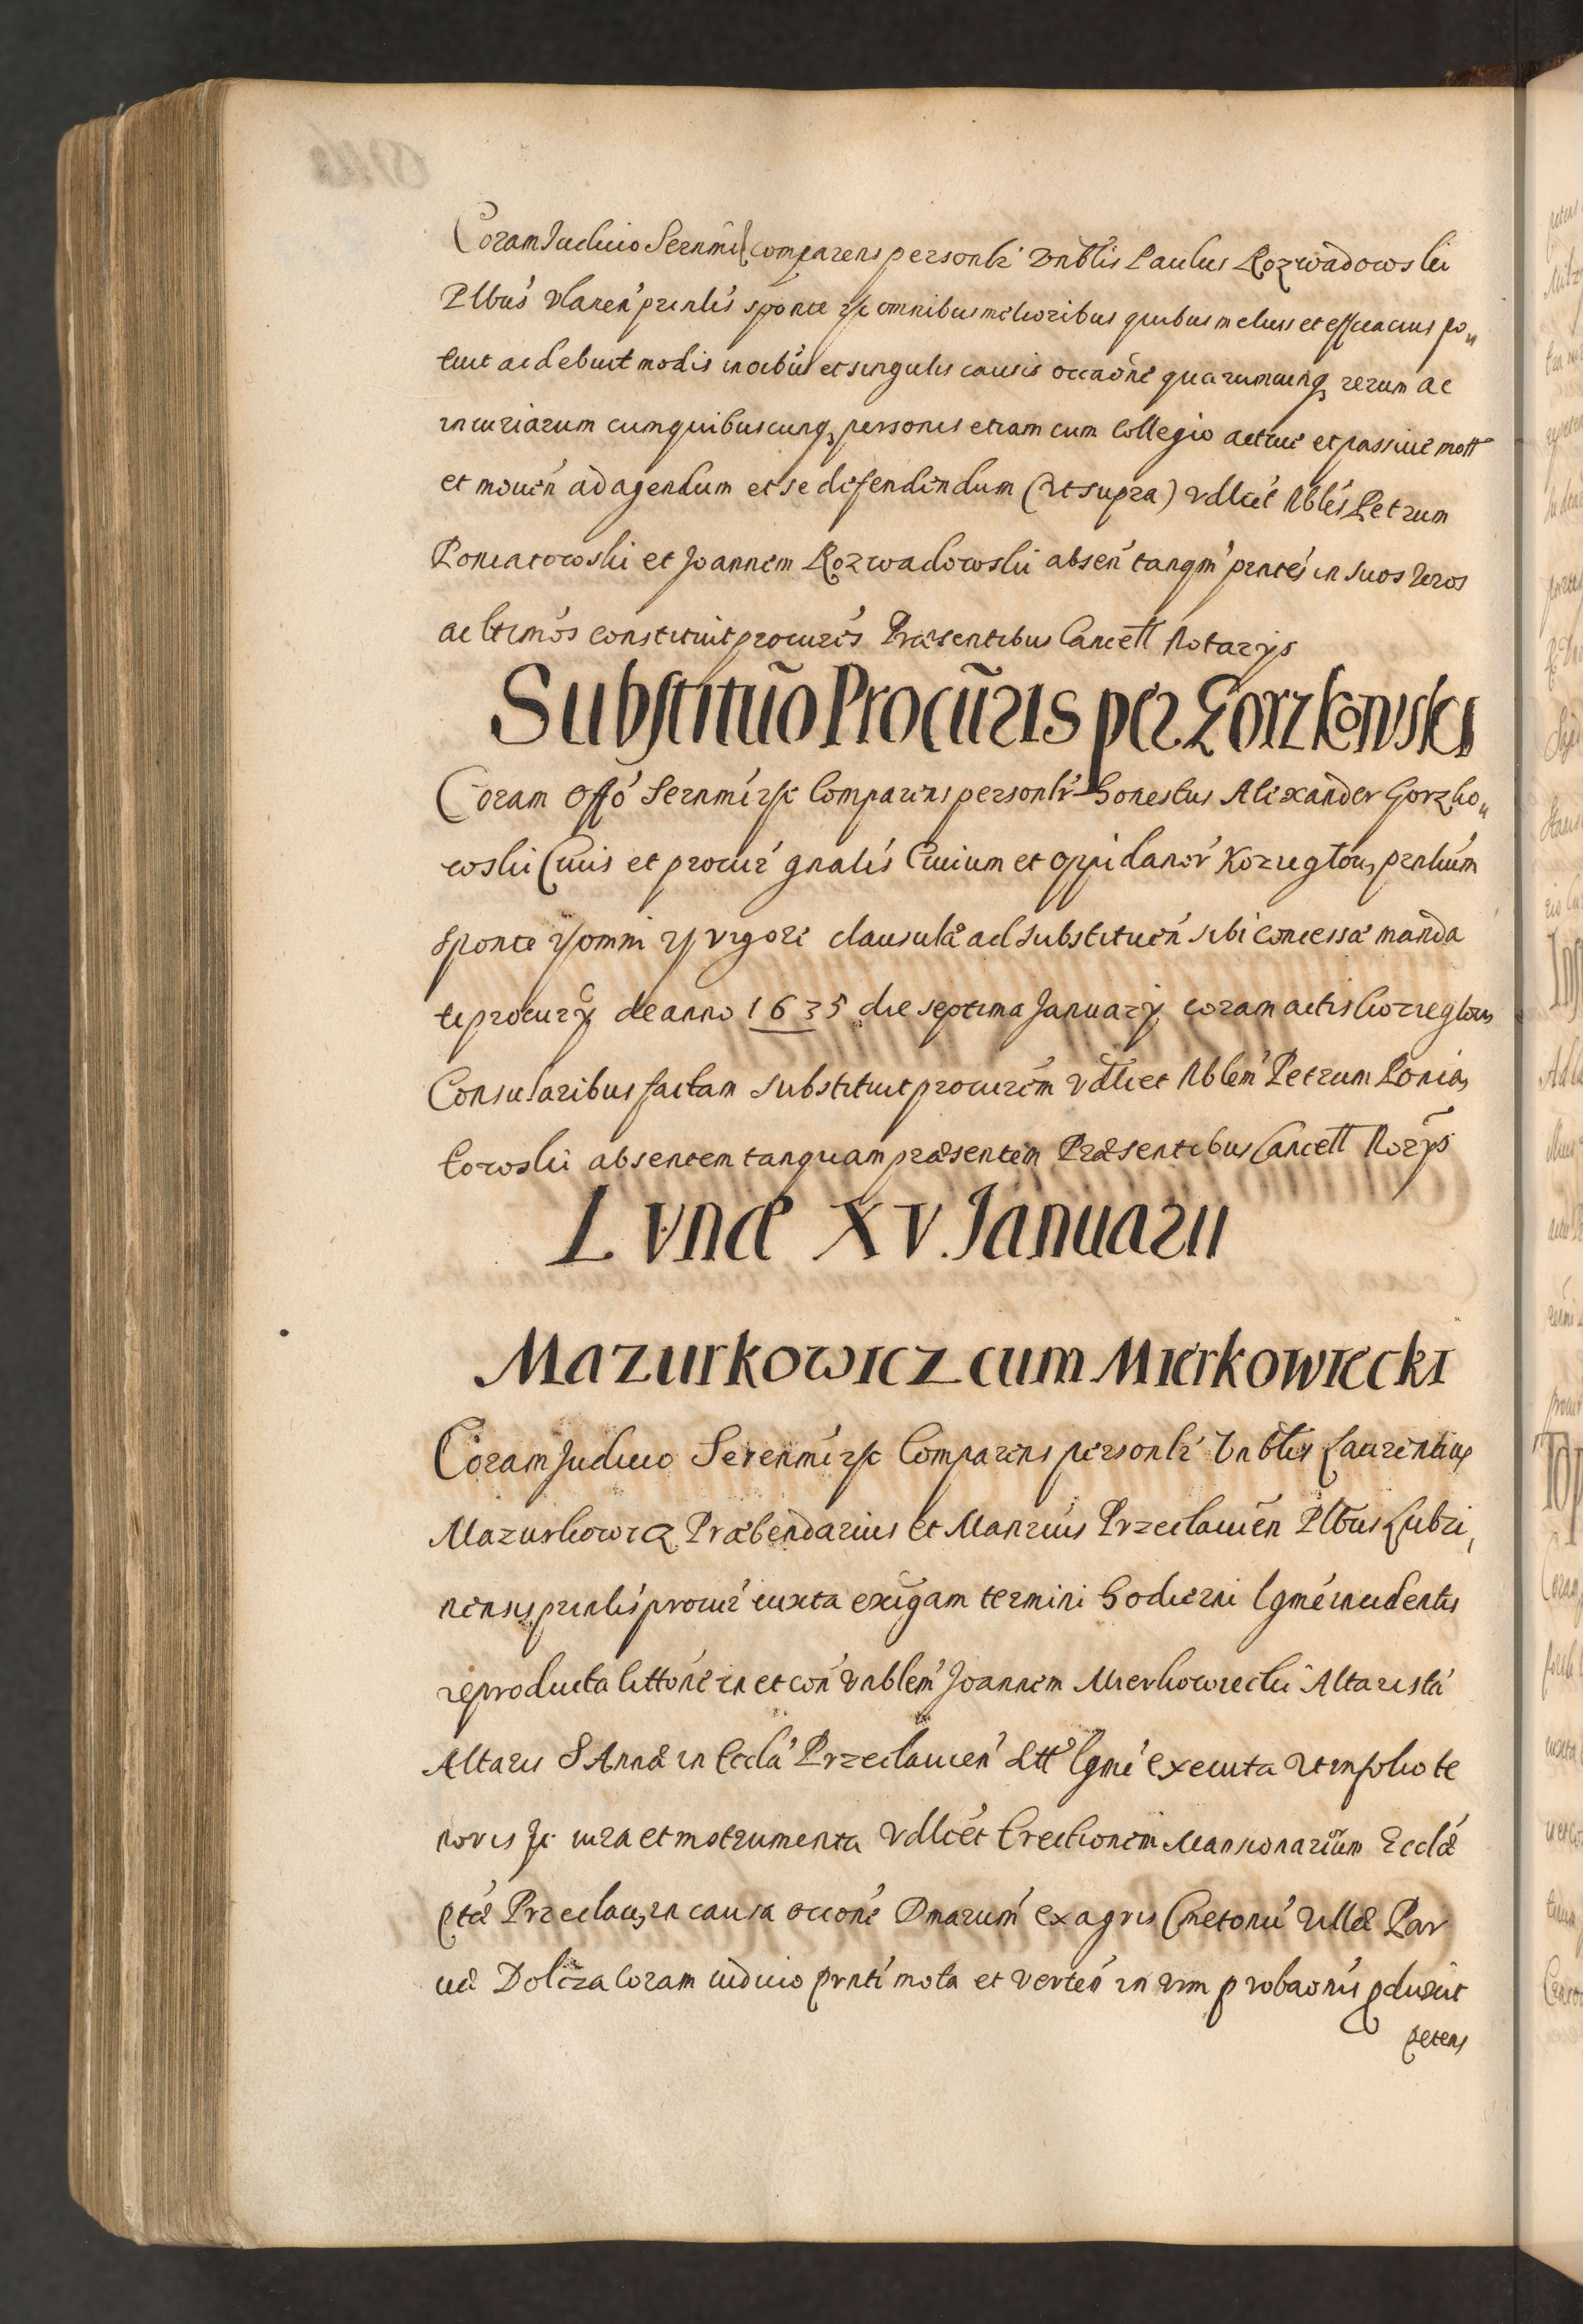 Coram Judicio Serenmi comparens personlr Vnblis Paulus Rozwadowski
Plbus Vlanen prnlis sponte &c omnibus melioribus quibus melius et efficacius po„
tuit ac debuit modis in oibus et singulis causis occaone quarumcunq rerum ac
iniuriarum cum quibuscunq personis etiam cum Collegio active et passive mott
et mouen ad agendum et se defendendum (ut supra) vdlicet Nbles Petrum
Poniatowski et Joannem Rozwadowski absen tanqm pntes in suos veros
ac ltimos constituit procures Praesentibus Cancell Notarijs
Substituo Procuris per Gorzkowski
Coram Offo Serenmi &c Comparens personlr Honestus Alexander Gorzko„
wski Ciuis et procur gnalis Ciuium et oppidanor Koziegłow, prnlium
sponte &c omni &c vigore clausulae ad substituen sibi concessae manda
ti procurij de anno 1635 die septima Januarij coram actis Koziegłow,
Consularibus factam substituit procurem vdlicet Nblem Petrum Ponia,
towski absentem tanquam praesentem Praesentibus Cancell Norijs
Lvnae XV. Januarii
Mazurkowicz cum Mierkowiecki
Coram Judicio Serenmi &c Comparens personlr Vnblis Laurentius
Mazurkowicz Praebendarius et Manrius Przeclauien Plbus Lubzi,
nensis prnlis procur iuxta exigam termini hodierni lgme incidentis
reproducta littone in et con Vnblem Joannem Mierkowiecki Altarista
Altaris S Annae in Eccla Przeclauien Ltt lgme executa ut in folio te
noris &c iura et instrumenta vdlicet Erectionem Mansionarium Ecclae
ptae Przeclau, in causa occone Dmarum ex agris Cmetonu Villae Par
uae Dolcza coram iudicio prnti mota et verten in vim probaonis pduxit
petens